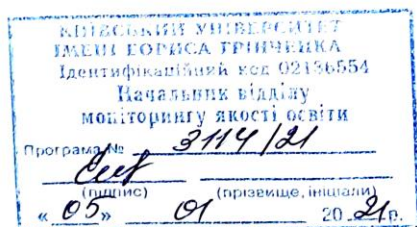 КИЇВСЬКИЙ УНІВЕРСИТЕТ
ІМЕНІ БОРИСА ГРІНЧЕНКА
Ідентифікаційний код 02136554
Начальник відділу
моніторингу якості освіти
Програма № 3114/21
(підпис) (прізвище, ініціали)
« 05 » 01 20 21 р.